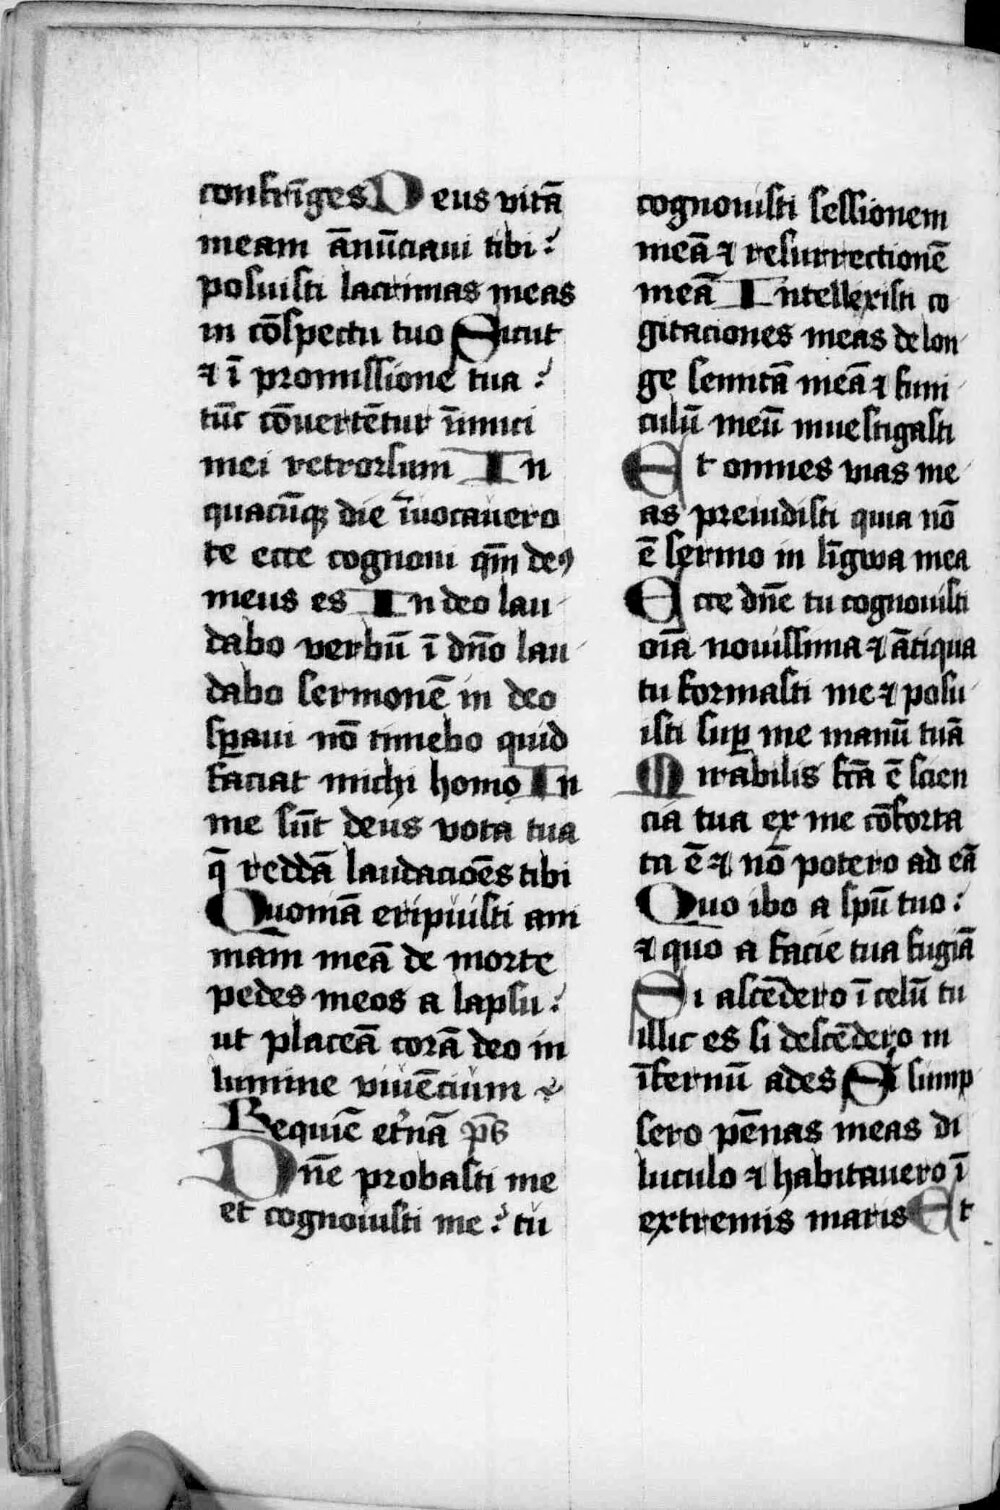 confrīges Deus vitā
meam ānūciaui tibi :
posuisti lacrimas meas
in cōspectu tuo Sicut
⁊ ī promissione tua :
tūc cōuertētur īimici
mei retrorsum In
quacūqꝫ die īuocauero
te ecce cognoui qm̄ deꝰ
meus es In deo lau
dabo verbū ī dn̄o lau
dabo sermonē in deo
sꝑaui nō timebo quid
faciat michi homo In
me sūt deus vota tua
q̄ reddā laudacioēs tibi
Quoniā eripuisti ani
mam meā de morte
pedes meos a lapsu :
ut placeā corā deo in
lumine viuēcium
Requiē et'nā pˢ
Dn̄e probasti me
et cognouisti me : tu
cognouisti sessionem
meā ⁊ resurrectionē
meā Intellexisti co
gitaciones meas de lon
ge semitā meā ⁊ funi
culū meū inuestigasti
Et omnes vias me
as preuidisti quia nō
ē sermo in līgwa mea
Ecce dn̄e tu cognouisti
oīa nouissima ⁊ ātiqua
tu formasti me ⁊ posu
isti suꝑ me manū tuā
Mirabilis fc̄a ē scien
cia tua ex me cōforta
ta ē ⁊ nō potero ad eā
Quo ibo a spū tuo :
⁊ quo a facie tua fugiā
Si ascēdero ī celū tu
illic es si descēdero in
īfernū ades Si sump
sero pēnas meas di
luculo ⁊ habitauero ī
extremis maris Et